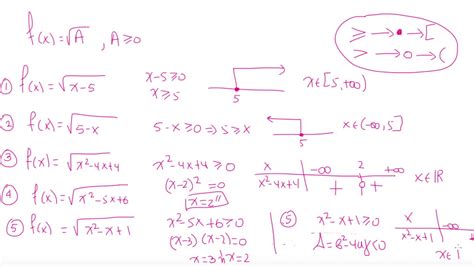 f(x)=√A , A≥0
≥ → • → [
> → o → (
① f(x)=√x-5 x-5≥0 x≥5 5 x∈[5,+∞)
② f(x)=√5-x 5-x≥0 ⇒ 5≥x 5 x∈(-∞,5]
③ f(x)=√x²-4x+4 x²-4x+4≥0 (x-2)²=0 x=2" x -∞ 2 +∞ x²-4x+4 + 0 + x∈ℝ
④ f(x)=√x²-5x+6 x²-5x+6≥0 (x-3)(x-2)=0 x=3 x=2
⑤ f(x)=√x²-x+1 ⑤ x²-x+1≥0 x -∞ x²-x+1 x∈